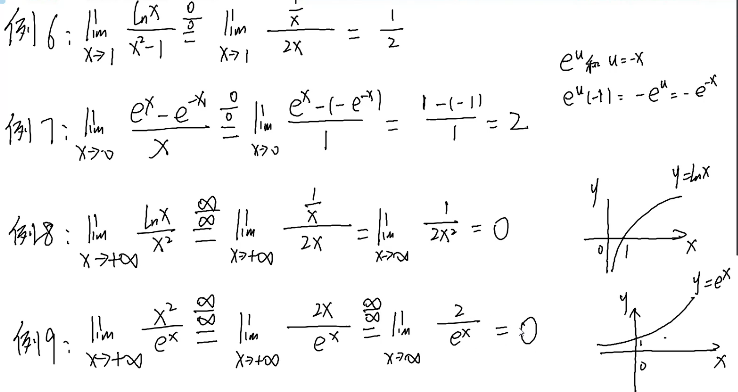 例6: lim x→1 lnx/(x²-1) =(0/0) lim x→1 (1/x)/(2x) = 1/2
e^u 和 u=-x
e^u(-1) = -e^u = -e^-x
例7: lim x→0 (e^x - e^-x)/x =(0/0) lim x→0 (e^x-(-e^-x))/1 = (1-(-1))/1 = 2
例8: lim x→+∞ lnx/x² =(∞/∞) lim x→+∞ (1/x)/(2x) = lim x→∞ 1/(2x²) = 0
y y=lnx
0 1 x
例9: lim x→+∞ x²/e^x =(∞/∞) lim x→+∞ 2x/e^x =(∞/∞) lim x→∞ 2/e^x = 0
y y=e^x
1
0 x